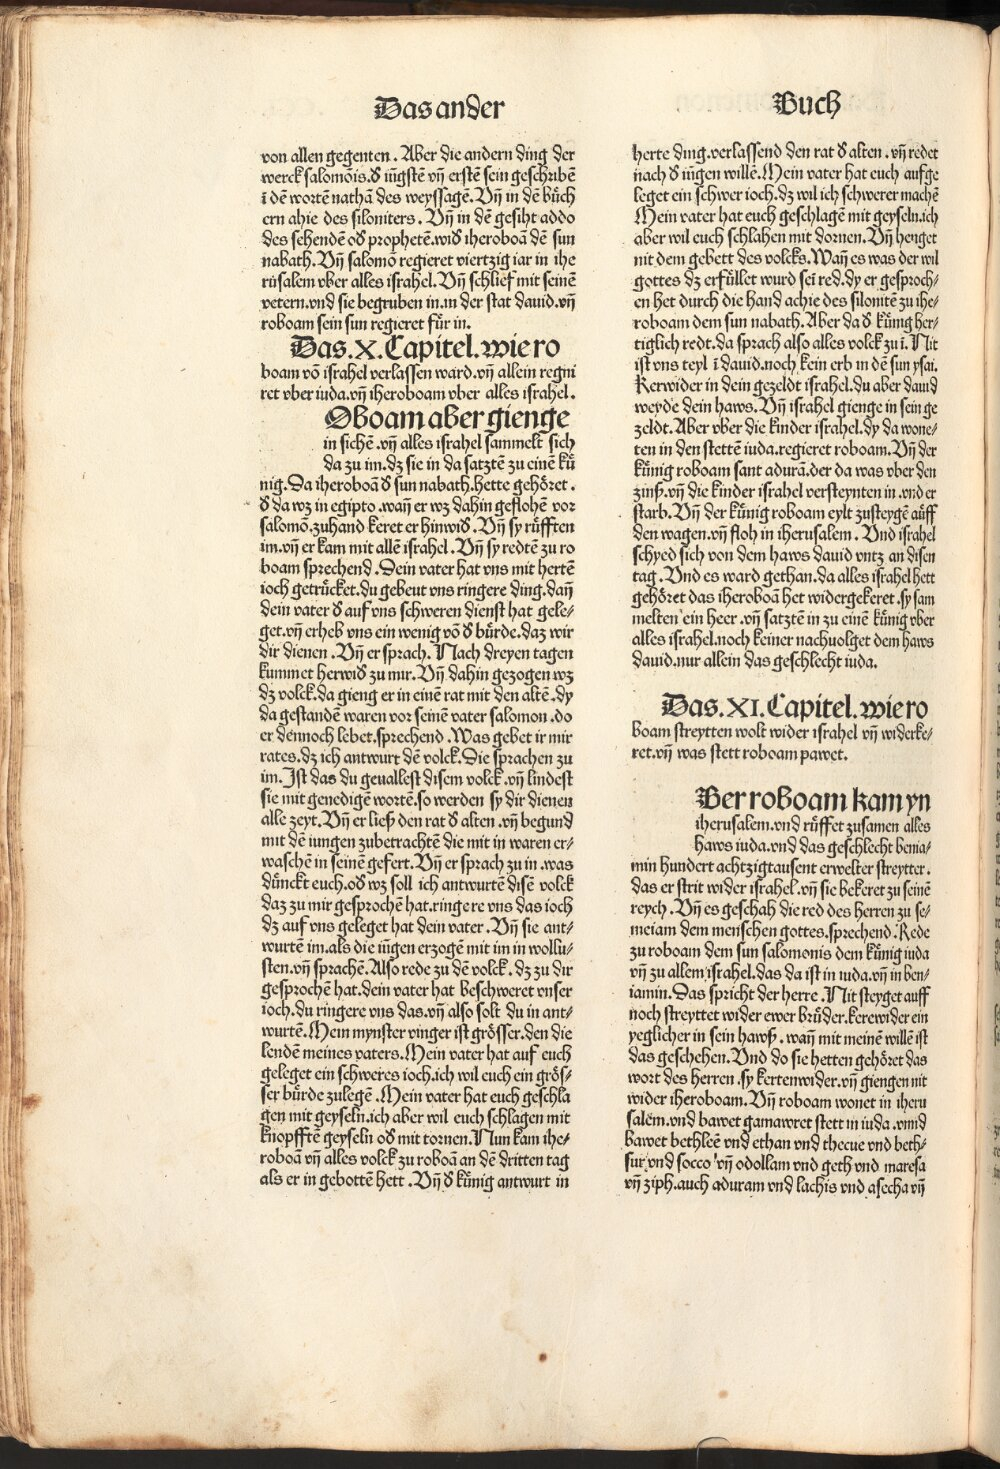 Das ander
Buch
von allen gegenten. Aber die andern ding der
werck salomōis.d̕ iüngstē vn̄ erstē sein geschribē
ī dē wortē nathā des weyssagē. Vn̄ in dē bu̍ch
ern ahie des siloniters. Vn̄ in dē gesiht addo
des sehendē od̕ prophetē.wid̕ iheroboā dē sun
nabath. Vn̄ salomō regieret viertzig iar in ihe
rusalem vber alles israhel. Vn̄ schlief mit seinē
vetern.vnd sie begruben in.in der stat dauid.vn̄
roboam sein sun regieret für in.
Das.X.Capitel.wie ro
boam vō israhel verlassen ward.vn̄ allein regni
ret vber iuda.vn̄ iheroboam vber alles israhel.
Oboam aber gienge
in sichē.vn̄ alles israhel sammelt sich
da zu im.dz sie in da satztē zu einē kü
nig. Da iheroboā d̕ sun nabath.hette gehöret.
d̕ da wz in egipto.wan̄ er wz dahin geflohē vor
salomō.zuhand keret er hinwid̕. Vn̄ sy rüfften
im.vn̄ er kam mit allē israhel. Vn̄ sy redtē zu ro
boam sprechend. Dein vater hat vns mit hertē
ioch getrücket.du gebeut vns ringere ding.dan̄
dein vater d̕ auf vns schweren dienst hat gele⸗
get.vn̄ erheb vns ein wenig vō d̕ bürde.daz wir
dir dienen. Vn̄ er sprach. Nach dreyen tagen
kummet herwid̕ zu mir. Vn̄ dahin gezogen wz
dz volck.da gieng er in einē rat mit den altē.dy
da gestandē waren vor seinē vater salomon.do
er dennoch lebet.sprechend. Was gebet ir mir
rates.dz ich antwurt dē volck. Die sprachen zu
im. Ist das du geuallest disem volck.vn̄ lindest
sie mit genedigē wortē.so werden sy dir dienen
alle zeyt. Vn̄ er ließ den rat d̕ alten.vn̄ begund
mit dē iungen zubetrachtē die mit in waren er⸗
waschē in seinē gefert. Vn̄ er sprach zu in.was
dünckt euch.od̕ wz soll ich antwurtē disē volck
daz zu mir gesprochē hat.ringere vns das ioch
dz auf vns geleget hat dein vater. Vn̄ sie ant⸗
wurtē im.als die iüngen erzogē mit im in wollu⸗
sten.vn̄ sprachē. Also rede zu dē volck.dz zu dir
gesprochē hat.dein vater hat beschweret vnser
ioch.du ringere vns das.vn̄ also solt du in ant⸗
wurtē. Mein mynster vinger ist grösser.den die
lendē meines vaters. Mein vater hat auf euch
geleget ein schweres ioch.ich wil euch ein grös⸗
ser bürde zulegē. Mein vater hat euch geschla
gen mit geyseln.ich aber wil euch schlagen mit
knopfftē geyseln od̕ mit tornen. Nun kam ihe⸗
roboā vn̄ alles volck zu roboā an dē dritten tag
als er in gebottē hett. Vn̄ d̕ künig antwurt in
herte ding.verlassend den rat d̕ alten.vn̄ redet
nach d̕ iūgen willē. Mein vater hat euch aufge
leget ein schwer ioch.dz wil ich schwerer machē
Mein vater hat euch geschlagē mit geyseln.ich
aber wil euch schlahen mit dornen. Vn̄ henget
nit dem gebett des volcks. Wan̄ es was der wil
gottes dz erfüllet wurd sei red.dy er gesproch⸗
en het durch die hand achie des silonitē zu ihe⸗
roboam dem sun nabath. Aber da d̕ künig her⸗
tiglich redt.da sprach also alles volck zu ī. Nit
ist vns teyl ī dauid.noch kein erb in dē sun ysai.
Kerwider in dein gezeldt israhel.du aber dauid
weyde dein haws. Vn̄ israhel gienge in sein ge
zeldt. Aber vber die kinder israhel.dy da wone⸗
ten in den stettē iuda.regieret roboam. Vn̄ der
künig roboam sant adurā.der da was vber den
zinß.vn̄ die kinder israhel versteynten in.vnd er
starb. Vn̄ der künig roboam eylt zusteygē auff
den wagen.vn̄ floh in iherusalem. Vnd israhel
schyed sich von dem haws dauid vntz an disen
tag. Vnd es ward gethan.da alles israhel hett
gehöret das iheroboā het widergekeret.sy sam
melten ein heer.vn̄ satztē in zu einē künig vber
alles israhel.noch keiner nachuolget dem haws
dauid.nur allein das geschlecht iuda.
Das.XI.Capitel.wie ro
boam streytten wolt wider israhel vn̄ widerke⸗
ret.vn̄ was stett roboam pawet.
Ber roboam kam yn
iherusalem.vnd rüffet zusamen alles
haws iuda.vnd das geschlecht benia⸗
min hundert achtzigtausent erwelter streytter.
das er strit wider israhel.vn̄ sie bekeret zu seinē
reych. Vn̄ es geschah die red des herren zu se⸗
meiam dem menschen gottes.sprechend. Rede
zu roboam dem sun salomonis dem künig iuda
vn̄ zu allem israhel.das da ist in iuda.vn̄ in ben⸗
iamin. Das spricht der herre. Nit steyget auff
noch streyttet wider ewer brüder.kerewider ein
yeglicher in sein hawß.wan̄ mit meinē willē ist
das geschehen. Vnd do sie hetten gehöret das
wort des herren.sy kertenwider.vn̄ giengen nit
wider iheroboam. Vn̄ roboam wonet in iheru
salem.vnd bawet gamawret stett in iuda.vnnd
bawet bethleē vnd ethan vnd thecue vnd beth⸗
sur.vnd socco vn̄ odollam vnd geth vnd maresa
vn̄ ziph.auch aduram vnd lachis vnd asecha vn̄